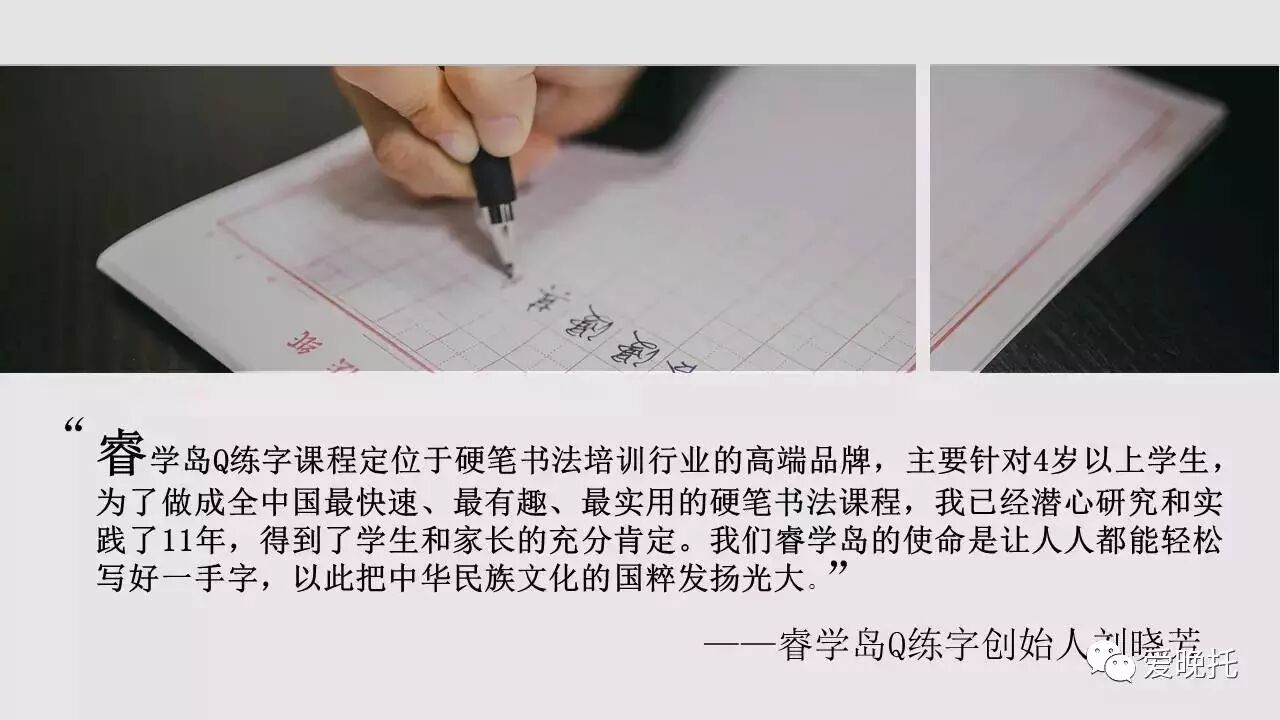 “睿学岛Q练字课程定位于硬笔书法培训行业的高端品牌，主要针对4岁以上学生，
为了做成全中国最快速、最有趣、最实用的硬笔书法课程，我已经潜心研究和实
践了11年，得到了学生和家长的充分肯定。我们睿学岛的使命是让人人都能轻松
写好一手字，以此把中华民族文化的国粹发扬光大。”
——睿学岛Q练字创始人刘晓芳
爱晚托